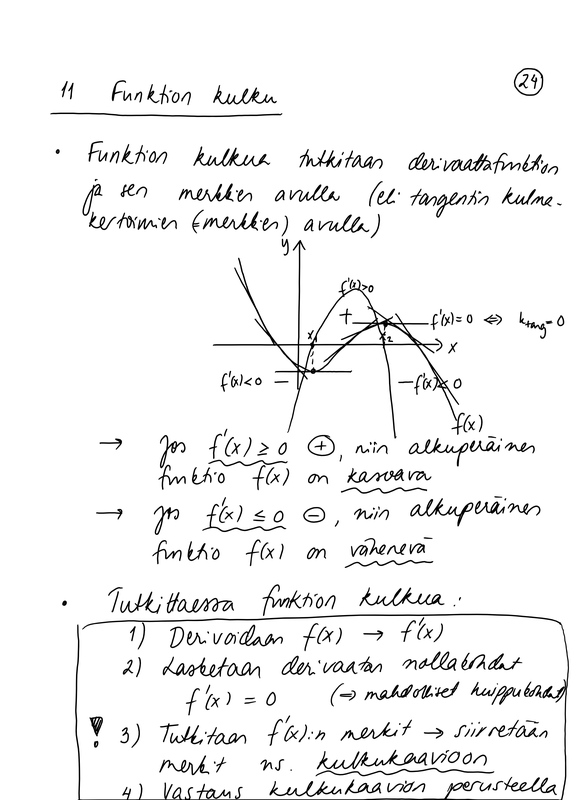 24
11 Funktion kulku
• Funktion kulkua tutkitaan derivaattafunktion
ja sen merkkien avulla (eli tangentin kulma-
kertoimien (=merkkien) avulla)
y
f'(x)>0
+
f'(x)=0 ⇔ k_tang=0
x₁
x₂
x
f'(x)<0 —
—f'(x)<0
f(x)
→ Jos f'(x) ≥ 0 ⊕, niin alkuperäinen
funktio f(x) on kasvava
→ Jos f'(x) ≤ 0 ⊖, niin alkuperäinen
funktio f(x) on vähenevä
• Tutkittaessa funktion kulkua:
1) Derivoidaan f(x) → f'(x)
2) Lasketaan derivaatan nollakohdat
f'(x) = 0 (⇒ mahdolliset huippukohdat)
! 3) Tutkitaan f'(x):n merkit → siirretään
merkit ns. kulkukaavioon
4) Vastaus kulkukaavion perusteella